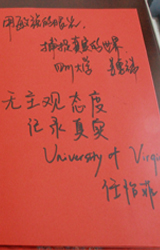 用敏锐的眼光,
捕捉真实的世界.
四川大学
无主观态度
记录真实
University of Virgi
任怡菲